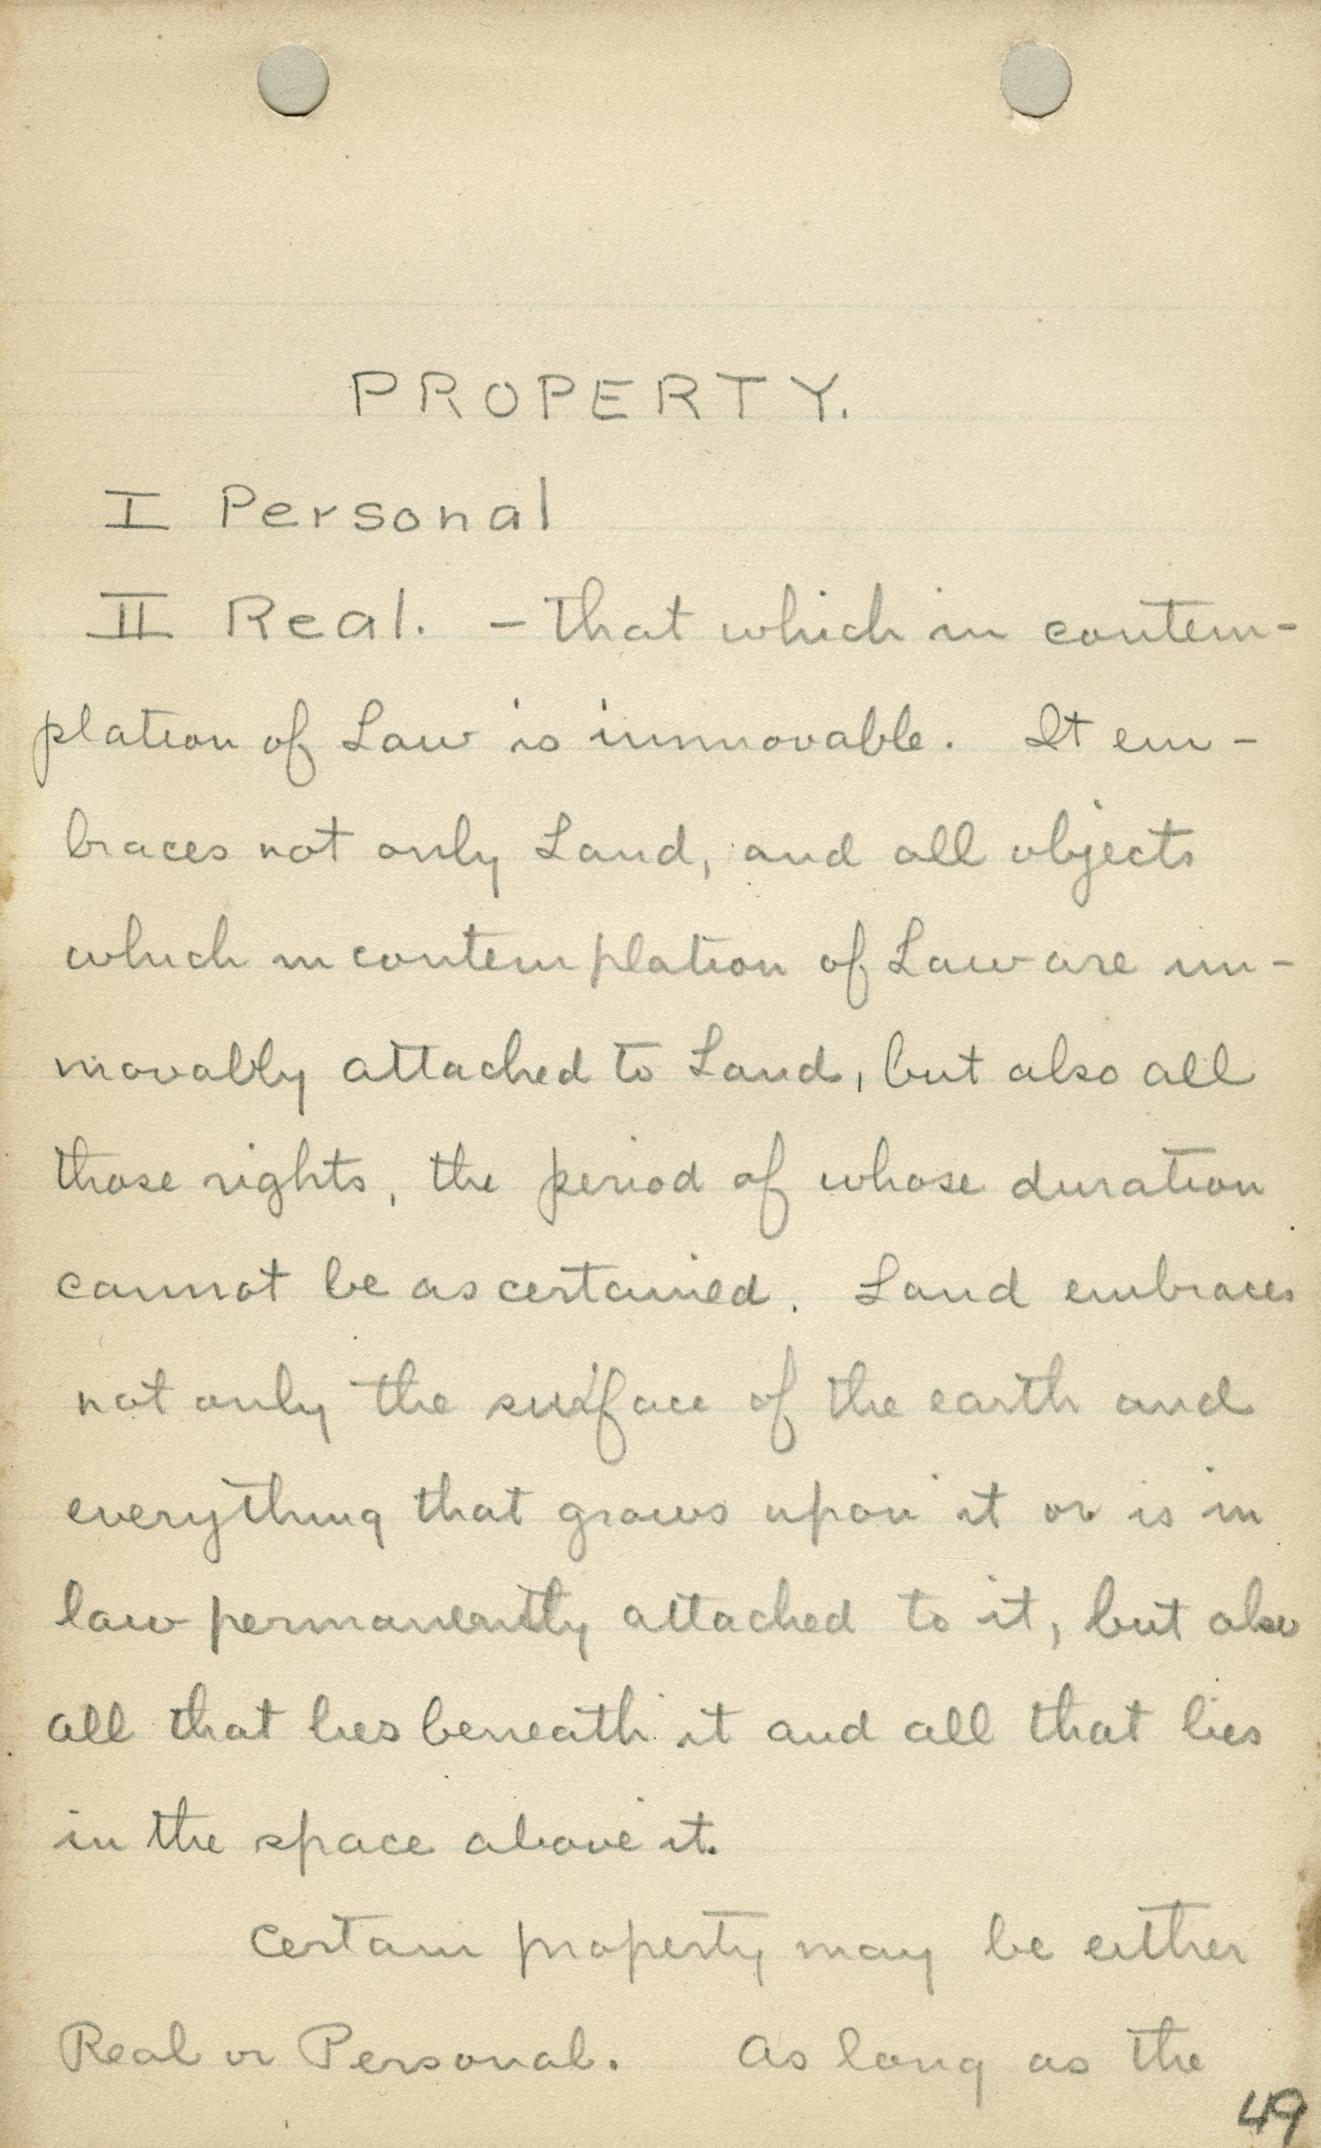 PROPERTY.
I Personal
II Real. - that which in contem-
plation of Law is immovable. It em-
braces not only Land, and all objects
which in contemplation of Law are im-
movably attached to Land, but also all
those rights, the period of whose duration
cannot be ascertained. Land embraces
not only the surface of the earth and
everything that grows upon it or is in
law permanently attached to it, but also
all that lies beneath it and all that lies
in the space above it.
Certain property may be either
Real or Personal. As long as the
49